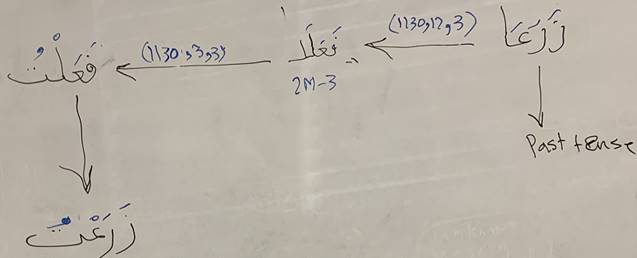 زَرَعَا (1130,12,3) فَعَلَا (1130,3,3) فَعَلْتُ
2M-3
Past tense
زَرَعْتُ